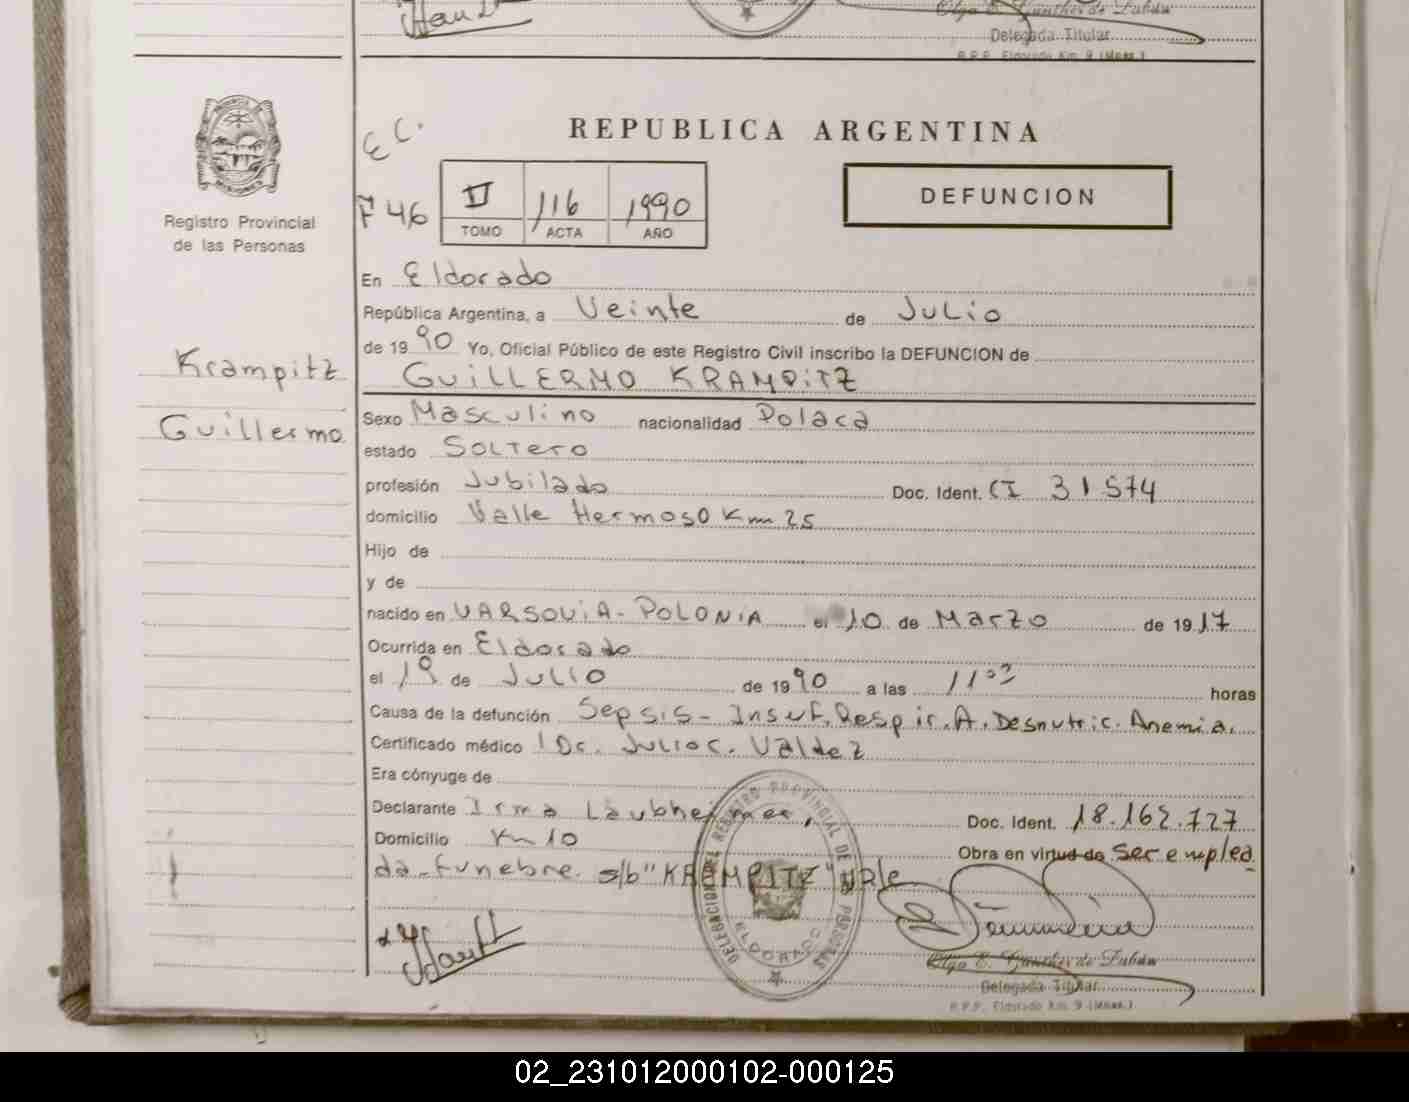 Olga E. Gunther de Dubán
Delegada Titular
R.P.P. Eldorado Km. 9 (Mnes.)
MISIONES
Registro Provincial
de las Personas
E C.
REPUBLICA ARGENTINA
F 46
II 116 1990
TOMO ACTA AÑO
DEFUNCION
En Eldorado
República Argentina, a Veinte de Julio
de 1990 Yo, Oficial Público de este Registro Civil inscribo la DEFUNCION de
GUILLERMO KRAMPITZ
Krampitz
Guillermo
Sexo Masculino nacionalidad Polaca
estado Soltero
profesión Jubilado Doc. Ident. CI 31.574
domicilio Valle Hermoso Km 25
Hijo de
y de
nacido en VARSOVIA - POLONIA el 10 de Marzo de 1917
Ocurrida en Eldorado
el 19 de Julio de 1990 a las 11 horas
Causa de la defunción Sepsis - Insuf. Respir. A. Desnutric. Anemia.
Certificado médico Dr. Julio C. Valdez
Era cónyuge de
Declarante Irma Laubheimer, Doc. Ident. 18.162.727
Domicilio Km 10 Obra en virtud de ser emplea
da-funebre. s/b "KRAMPITZ" Vale
DELEGACION DEL REGISTRO PROVINCIAL DE PERSONAS
ELDORADO
Olga E. Gunther de Dubán
Delegada Titular
R.P.P. Eldorado Km 9 (Mnes.)
02_231012000102-000125